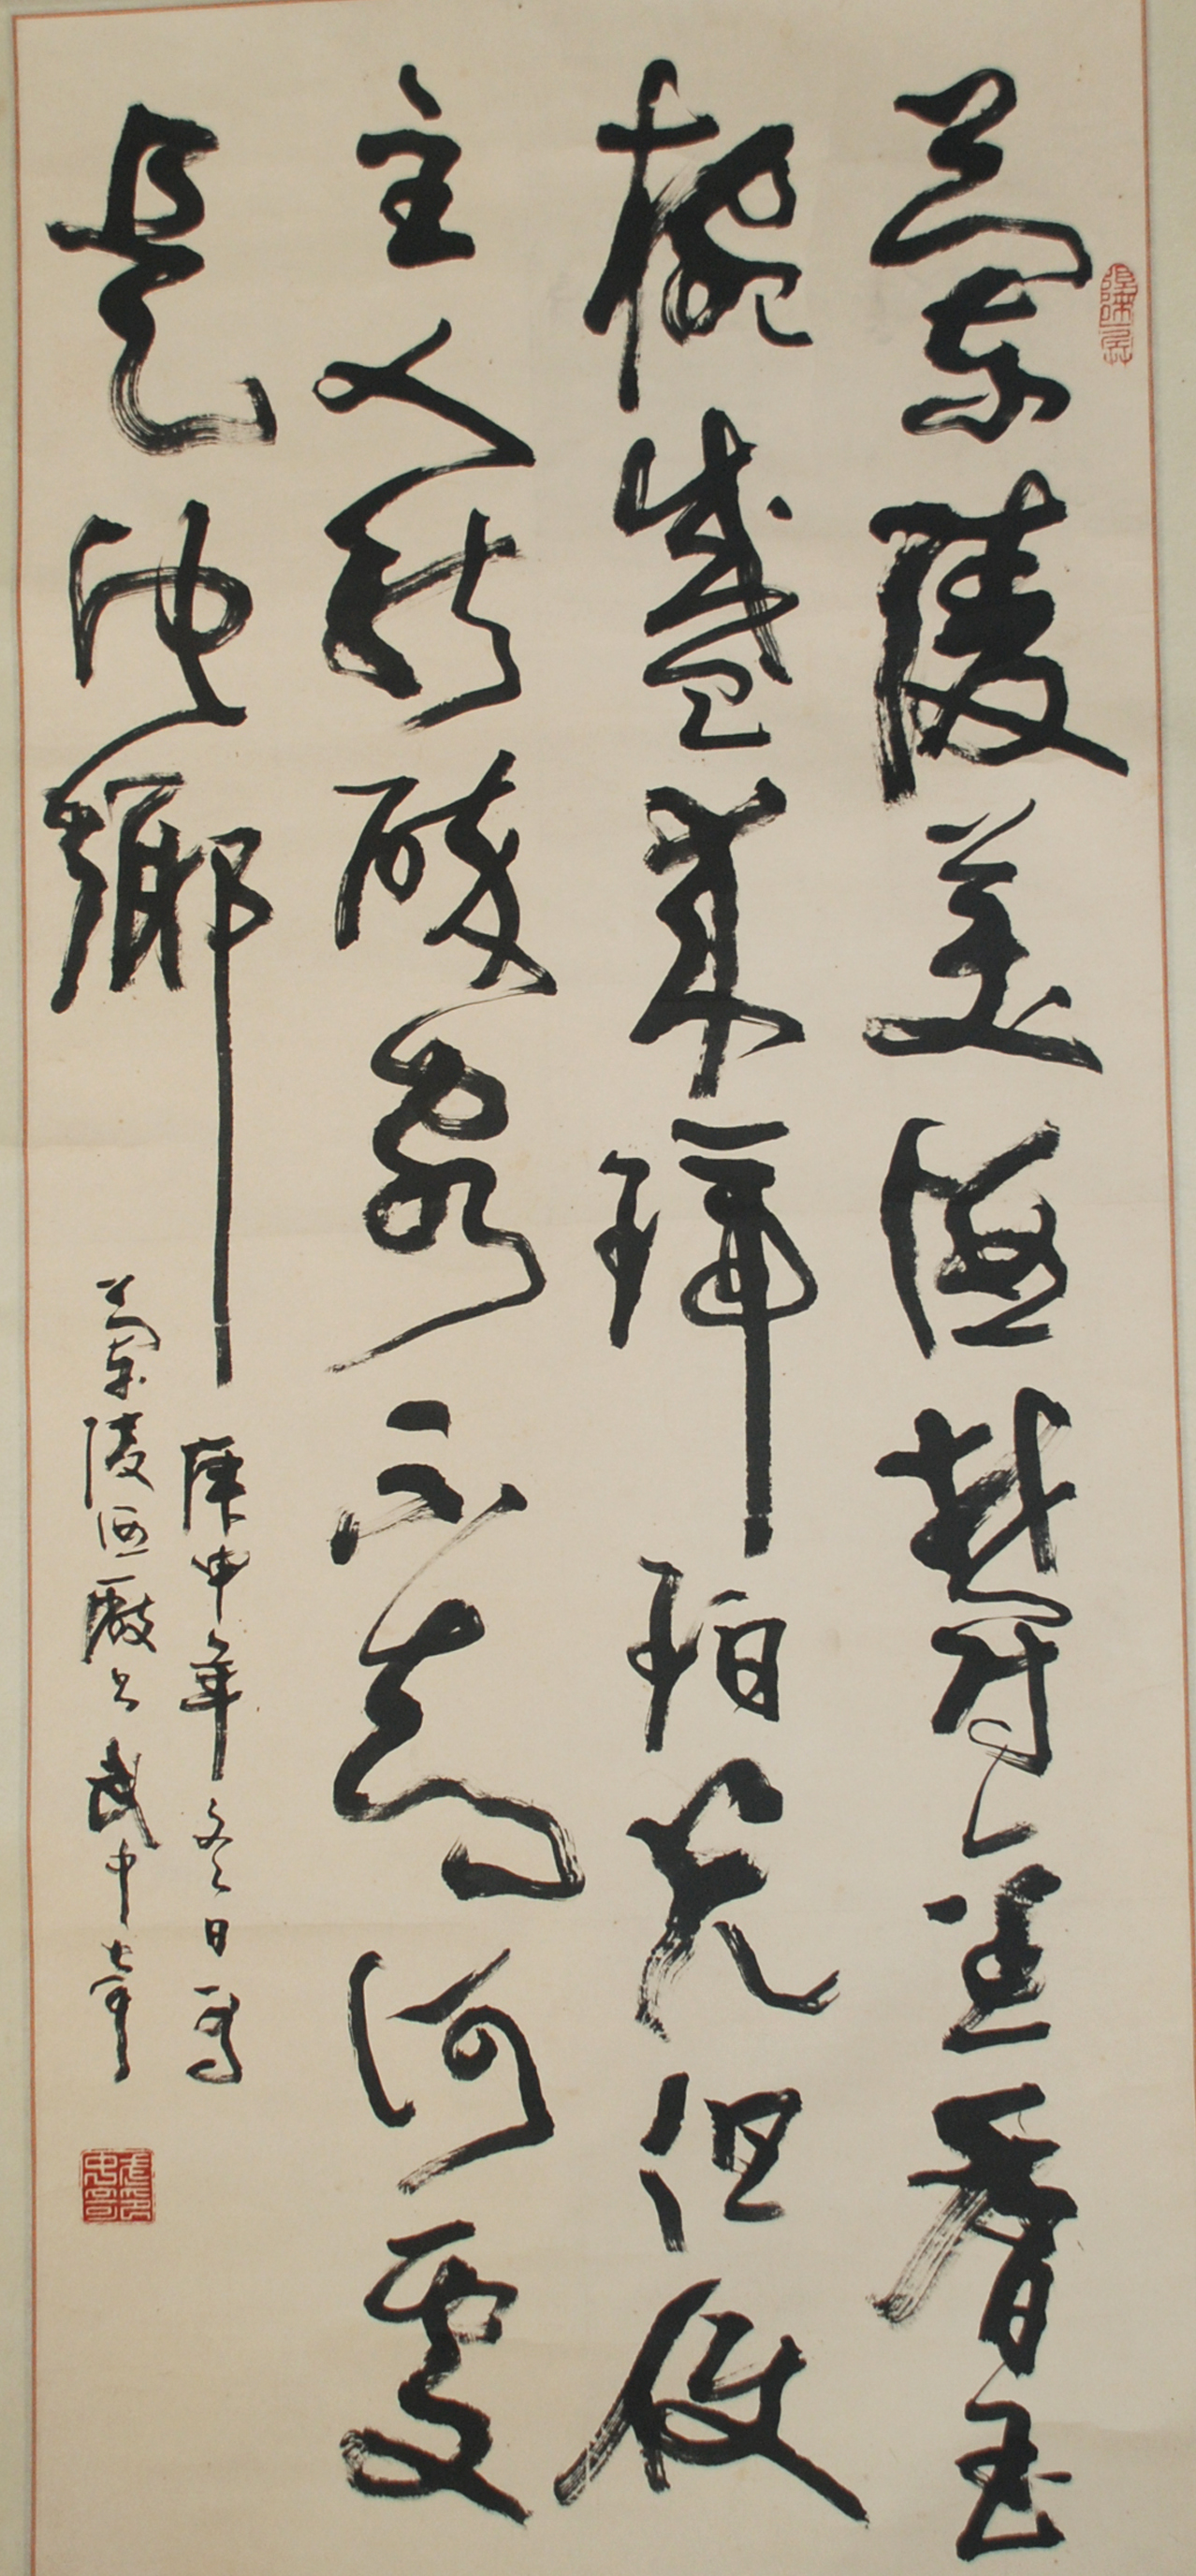 蘭陵美酒鬱金香玉
椀盛來琥珀光但使
主人能醉客不知何處
是他鄉
庚申年冬日寫
蘭陵酒廠公 武中奇